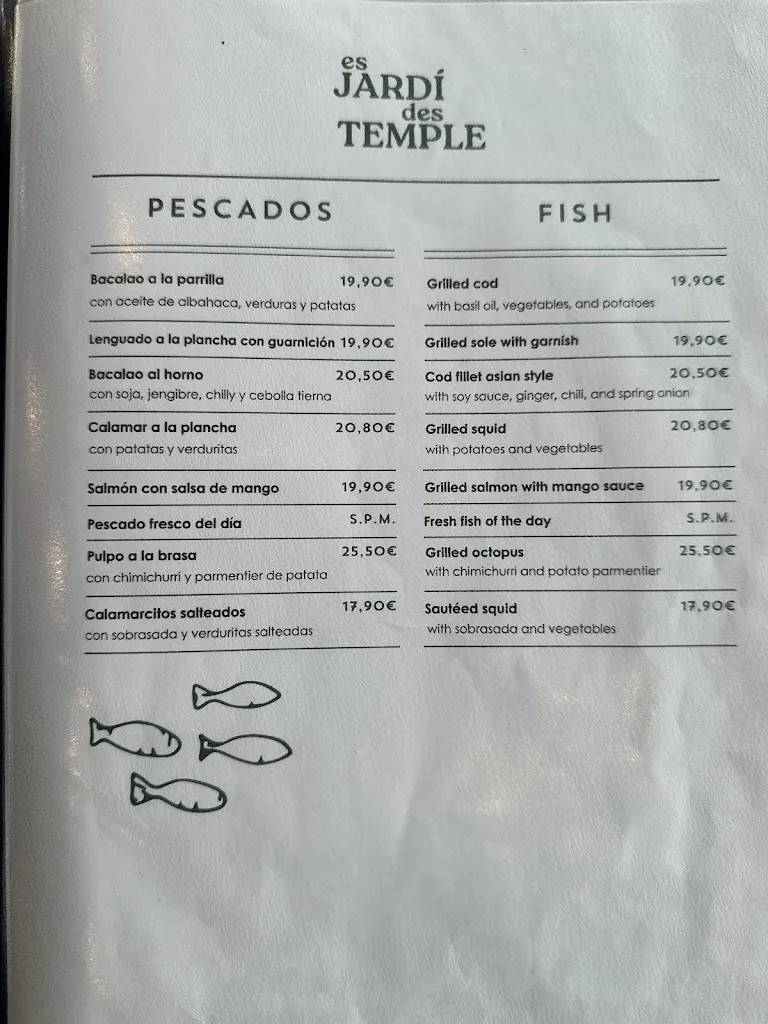 es
JARDÍ
des
TEMPLE
PESCADOS
Bacalao a la parrilla 19,90€
con aceite de albahaca, verduras y patatas
Lenguado a la plancha con guarnición 19,90€
Bacalao al horno 20,50€
con soja, jengibre, chilly y cebolla tierna
Calamar a la plancha 20,80€
con patatas y verduritas
Salmón con salsa de mango 19,90€
Pescado fresco del día S.P.M.
Pulpo a la brasa 25,50€
con chimichurri y parmentier de patata
Calamarcitos salteados 17,90€
con sobrasada y verduritas salteadas
FISH
Grilled cod 19,90€
with basil oil, vegetables, and potatoes
Grilled sole with garnish 19,90€
Cod fillet asian style 20,50€
with soy sauce, ginger, chili, and spring onion
Grilled squid 20,80€
with potatoes and vegetables
Grilled salmon with mango sauce 19,90€
Fresh fish of the day S.P.M.
Grilled octopus 25,50€
with chimichurri and potato parmentier
Sautéed squid 17,90€
with sobrasada and vegetables